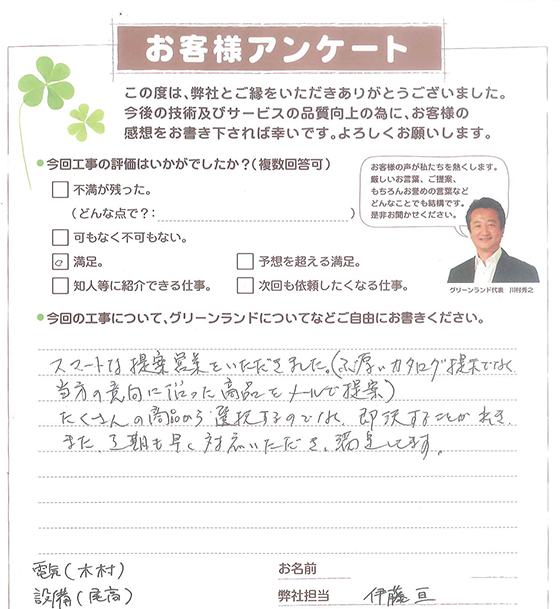 お客様アンケート
この度は、弊社とご縁をいただきありがとうございました。
今後の技術及びサービスの品質向上の為に、お客様の
感想をお書き下されば幸いです。よろしくお願いします。
●今回工事の評価はいかがでしたか?(複数回答可)
お客様の声が私たちを熱くします。
厳しいお言葉、ご提案、
もちろんお誉めの言葉など
どんなことでも結構です。
是非お聞かせください。
不満が残った。
(どんな点で?: )
可もなく不可もない。
満足。
予想を超える満足。
知人等に紹介できる仕事。
次回も依頼したくなる仕事。
グリーンランド代表 川村秀之
●今回の工事について、グリーンランドについてなどご自由にお書きください。
スマートな提案営業をいただきました。(分厚いカタログ提示でなく
当方の意向に沿った商品をメールで提案)
たくさんの商品から選択するのでなく、即決することができ、
また、工期も早く対応いただき、満足してます。
電気(木村)
お名前
設備(尾高)
弊社担当 伊藤 亘